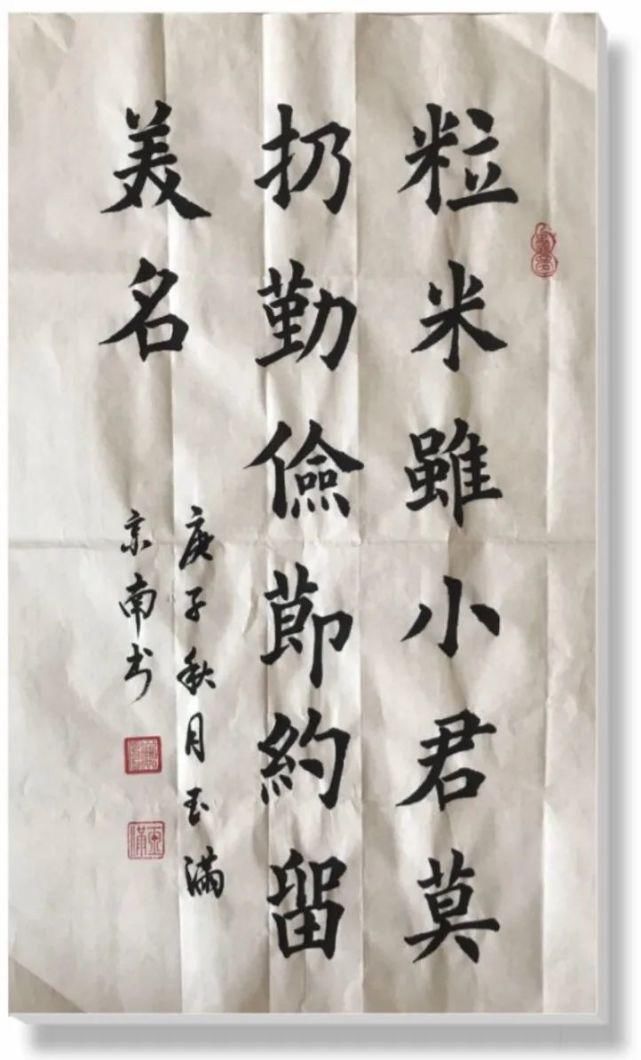 粒米雖小君莫
扔勤儉節約留
美名
庚子秋月玉滿
京南书